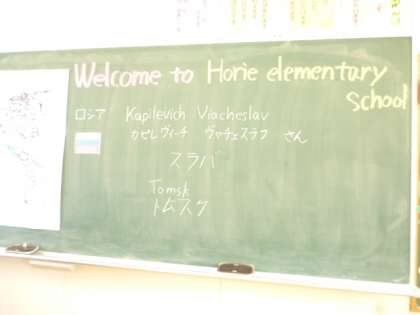 Welcome to Horie elementary
School
ロシア Kapilevich Viacheslav
カピレヴィーチ ヴャチェスラフ さん
スラバ
Tomsk
トムスク